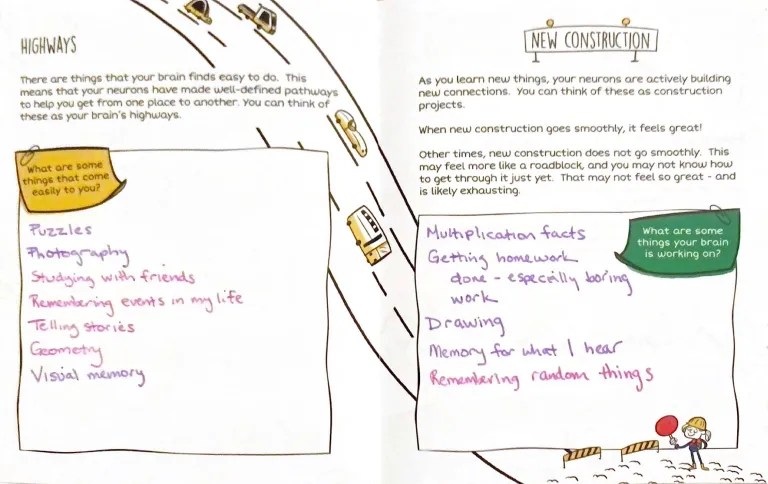 HIGHWAYS
There are things that your brain finds easy to do. This
means that your neurons have made well-defined pathways
to help you get from one place to another. You can think of
these as your brain's highways.
What are some
things that come
easily to you?
Puzzles
Photography
Studying with friends
Remembering events in my life
Telling stories
Geometry
Visual memory
NEW CONSTRUCTION
As you learn new things, your neurons are actively building
new connections. You can think of these as construction
projects.
When new construction goes smoothly, it feels great!
Other times, new construction does not go smoothly. This
may feel more like a roadblock, and you may not know how
to get through it just yet. That may not feel so great - and
is likely exhausting.
What are some
things your brain
is working on?
Multiplication facts
Getting homework
done - especially boring
work
Drawing
Memory for what I hear
Remembering random things